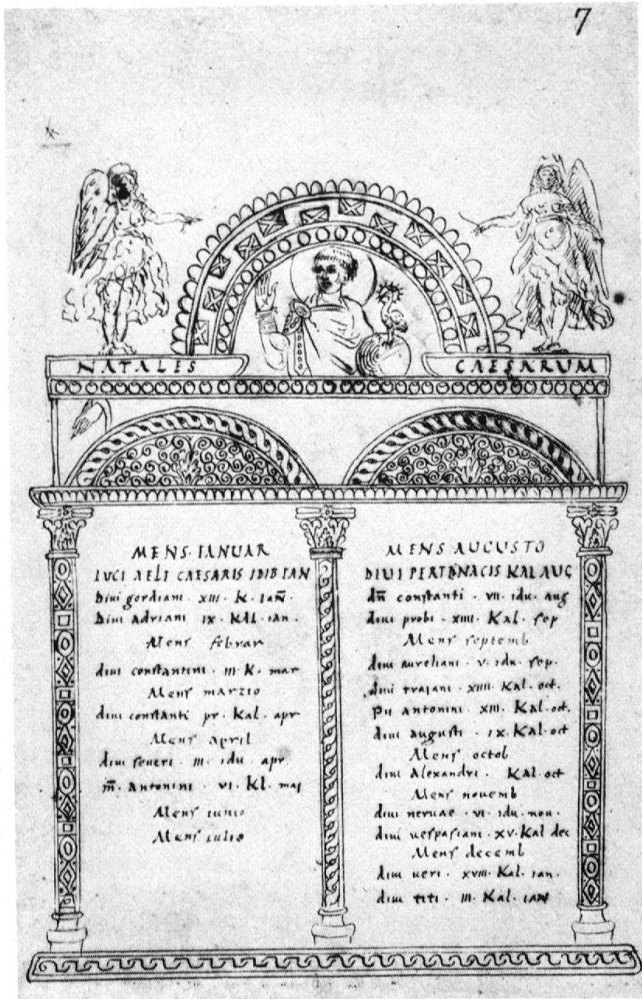 7
NATALES CAESARUM
MENS·IANUAR
LUCI AELI CAESARIS IDIB IAN
Diui gordiani · XIII · K · IAÑ ·
Diui adriani IX · KAL · ian ·
Mens februar
diui constantini · III · K · mar
Mens marzio
diui constanti pr · Kal · apr
Mens april
diui seueri · III · idu · apr
m̅ · antonini · VI · Kl · maj
Mens iunio
Mens iulio
MENS AUGUSTO
DIUI PERTENACIS KAL AUG
dñ constanti · VII · idu · aug
diui probi · XIIII · Kal · sep
Mens septemb
diui aureliani · V · idu · sep ·
diui traiani · XIIII · Kal · oct ·
pii antonini · XIII · Kal · oct ·
diui augusti · IX · Kal · oct
Mens octob
diui Alexandri · Kal · oct
Mens nouemb
diui neruae · VI · idu · nou ·
diui uespasiani · XV · Kal dec
Mens decemb
diui ueri · XVIII · Kal · ian ·
diui titi · III · Kal · IAN